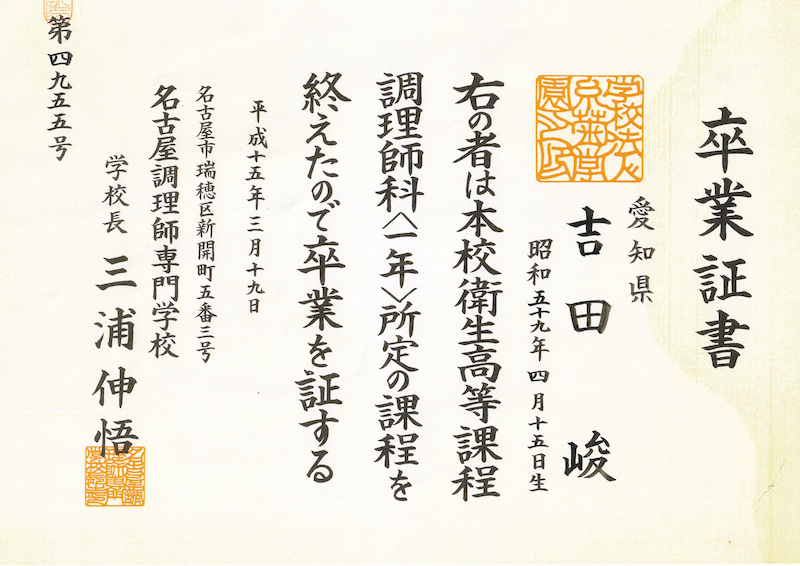 卒業証書
愛知県
吉田 峻
昭和五十九年四月十五日生
右の者は本校衛生高等課程
調理師科〈一年〉所定の課程を
終えたので卒業を証する
平成十五年三月十九日
名古屋市瑞穂区新開町五番三号
名古屋調理師専門学校
学校長 三浦伸悟
第四九五五号